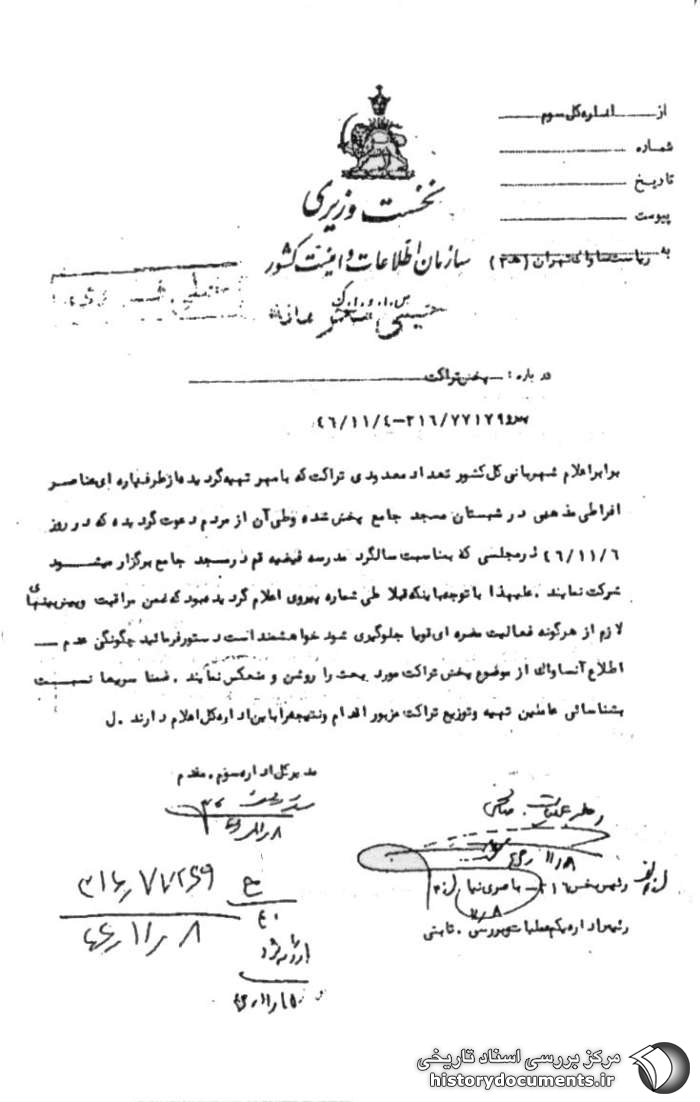 از اداره کل سوم
شماره
تاریخ
پیوست
به ریاست ساواک تهران (۳ه‍)
نخست وزیری
سازمان اطلاعات و امنیت کشور
س.ا.و.ا.ک
درباره : پخش تراکت
پیرو ۳۱۶/۷۷۱۷۹-۴۶/۱۱/۴
برابر اعلام شهربانی کل کشور تعداد معدودی تراکت که با مهر تهیه گردیده از طرف پاره ای عناصر
افراطی مذهبی در شبستان مسجد جامع پخش شده وطی آن از مردم دعوت گردیده که در روز
۴۶/۱۱/۶ در مجلسی که بمناسبت سالگرد مدرسه فیضیه قم در مسجد جامع برگزار میشود
شرکت نمایند . علیهذا با توجه باینکه قبلا طی شماره پیروی اعلام گردیده بود که ضمن مراقبت وپیش بینیهای
لازم از هرگونه فعالیت مضره ای قویا جلوگیری شود خواهشمند است دستور فرمائید چگونگی عدم
اطلاع آنساواک از موضوع پخش تراکت مورد بحث را روشن و منعکس نمایند . ضمنا سریعا نسبت
بشناسائی عاملین تهیه وتوزیع تراکت مزبور اقدام ونتیجه را باین اداره کل اعلام دارند . ل
مدیرکل اداره سوم . مقدم
۴۶/۱۱/۸
رئیس بخش ۳۱۶
رئیس اداره یکم عملیات وبررسی . ثابتی
۴۶/۱۱/۸
مرکز بررسی اسناد تاریخی
historydocuments.ir